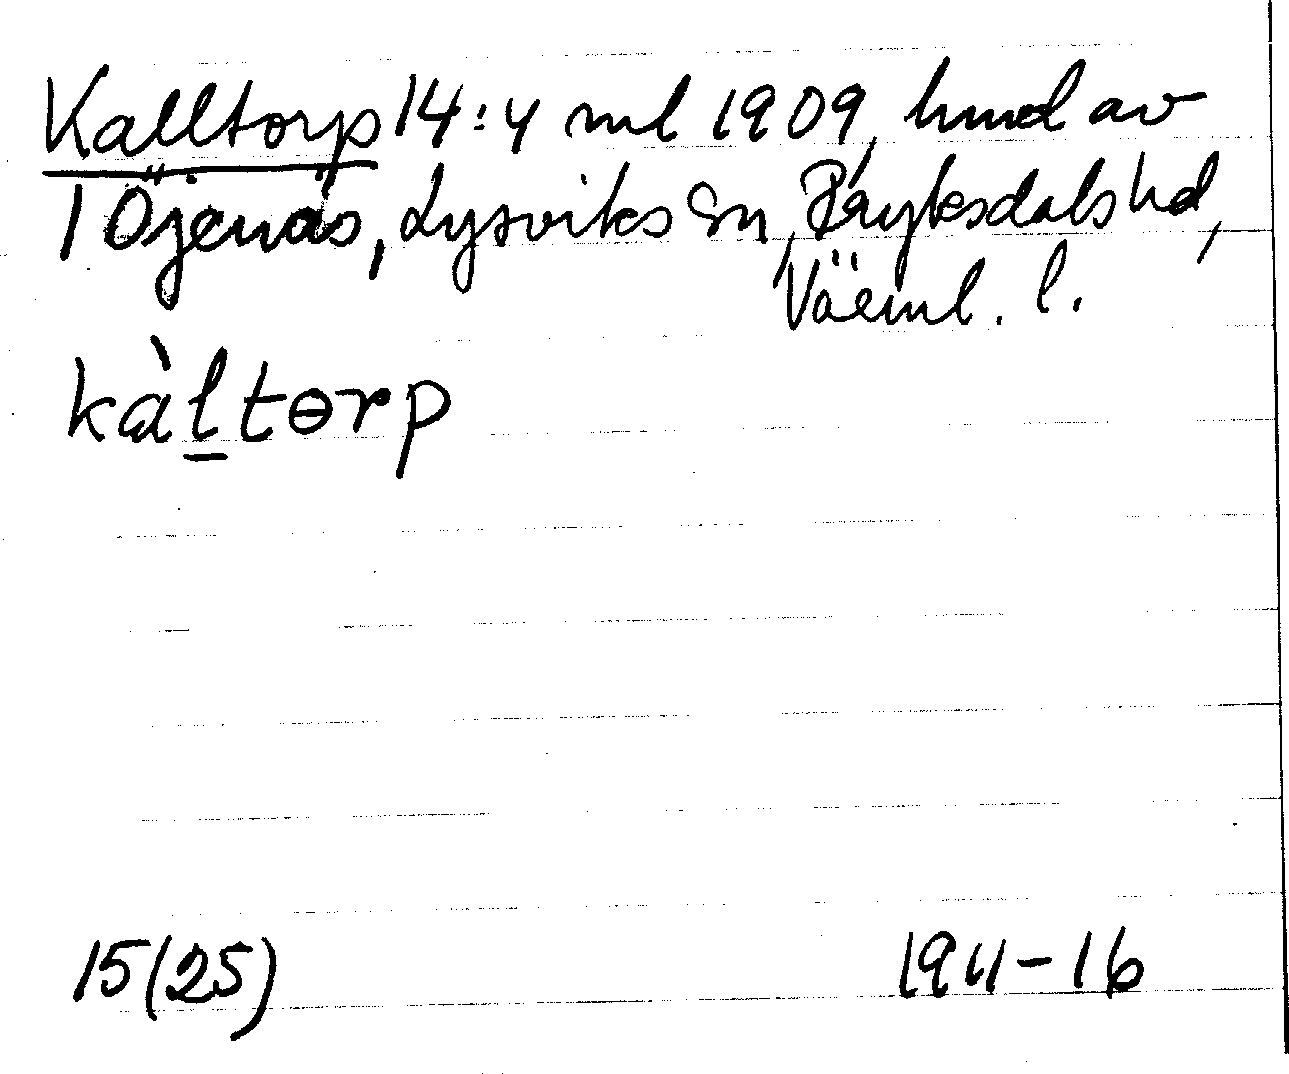 Kalltorp 14:4 ml 1909, hmd av
1 Öjenäs, Lysviks sn, Fryksdals hd,
Värml. l.
kàl̲tɵrp
15(25) 1911-16